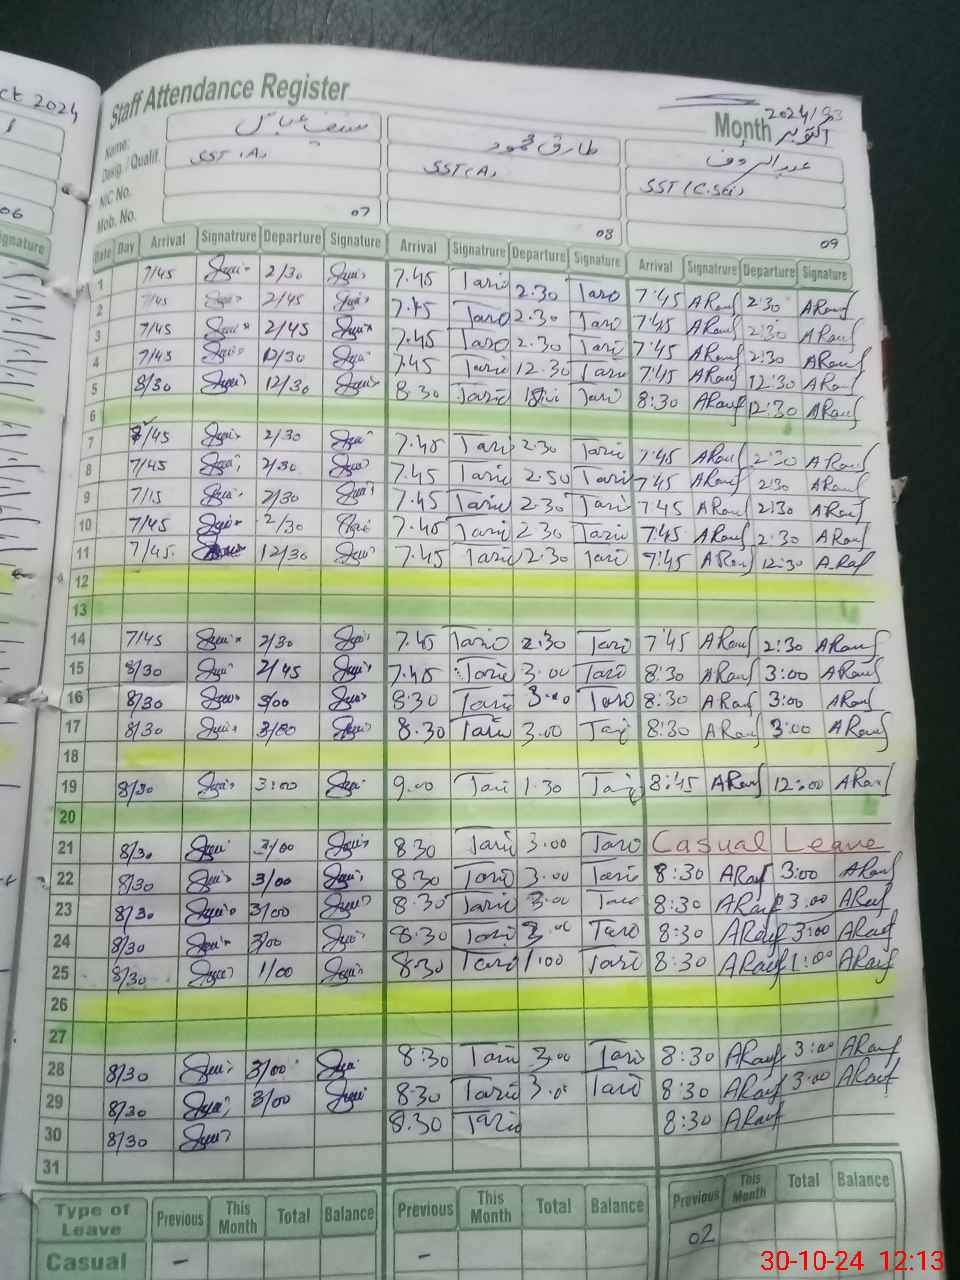 ct 2024
Staff Attendance Register
2024/
Month اکتوبر
Name: طارق محمود عبدالرؤف
Desig. / Qualif. SST (A) SST (A) SST (C.Sci)
NIC No.
Mob. No. 07 08 09
06
Signature
Date Day Arrival Signatrure Departure Signature Arrival Signatrure Departure Signature Arrival Signatrure Departure Signature
1 7/45 2/30 7.45 Tariq 2.30 Tariq 7:45 ARauf 2:30 ARauf
2 7/45 2/45 7.45 Tariq 2.30 Tariq 7:45 ARauf 2:30 ARauf
3 7/45 2/45 7.45 Tariq 2.30 Tariq 7:45 ARauf 2:30 ARauf
4 7/45 12/30 7.45 Tariq 12.30 Tariq 7:45 ARauf 12:30 ARauf
5 8/30 12/30 8.30 Tariq Tariq 8:30 ARauf 12:30 ARauf
6
7 7/45 2/30 7.45 Tariq 2.30 Tariq 7:45 ARauf 2:30 ARauf
8 7/45 2/30 7.45 Tariq 2.50 Tariq 7:45 ARauf 2:30 ARauf
9 7/15 2/30 7.45 Tariq 2.30 Tariq 7:45 ARauf 2:30 ARauf
10 7/45 2/30 7.45 Tariq 2.30 Tariq 7:45 ARauf 2:30 ARauf
11 7/45 12/30 7.45 Tariq 12.30 Tariq 7:45 ARauf 12:30 ARauf
12
13
14 7/45 2/30 7.45 Tariq 2:30 Tariq 7:45 ARauf 2:30 ARauf
15 8/30 2/45 7.45 Tariq 3.00 Tariq 8:30 ARauf 3:00 ARauf
16 8/30 3/00 8:30 Tariq 3.00 Tariq 8:30 ARauf 3:00 ARauf
17 8/30 3/00 8.30 Tariq 3.00 Tariq 8:30 ARauf 3:00 ARauf
18
19 8/30 3:00 9.00 Tariq 1.30 Tariq 8:45 ARauf 12:00 ARauf
20
21 8/30 3/00 8.30 Tariq 3.00 Tariq Casual Leave
22 8/30 3/00 8.30 Tariq 3.00 Tariq 8:30 ARauf 3:00 ARauf
23 8/30 3/00 8.30 Tariq 3.00 Tariq 8:30 ARauf 3:00 ARauf
24 8/30 3/00 8.30 Tariq 3.00 Tariq 8:30 ARauf 3:00 ARauf
25 8/30 1/00 8.30 Tariq 1:00 Tariq 8:30 ARauf 1:00 ARauf
26
27
28 8/30 3/00 8:30 Tariq 3.00 Tariq 8:30 ARauf 3:00 ARauf
29 8/30 3/00 8.30 Tariq 3.00 Tariq 8:30 ARauf 3:00 ARauf
30 8/30 8.30 Tariq 8:30 ARauf
31
Type of Leave Previous This Month Total Balance Previous This Month Total Balance Previous This Month Total Balance
Casual – – 02
30-10-24 12:13